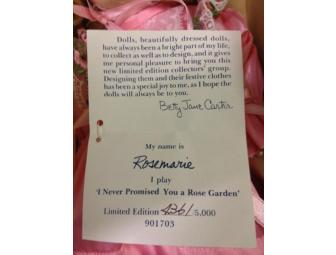 Dolls, beautifully dressed dolls,
have always been a bright part of my life,
to collect as well as to design, and it gives
me personal pleasure to bring you this
new limited edition collectors' group.
Designing them and their festive clothes
has been a special joy to me, as I hope the
dolls will always be to you.
Betty Jane Carter
My name is
Rosemarie
I play
'I Never Promised You a Rose Garden'
Limited Edition /5,000
901703